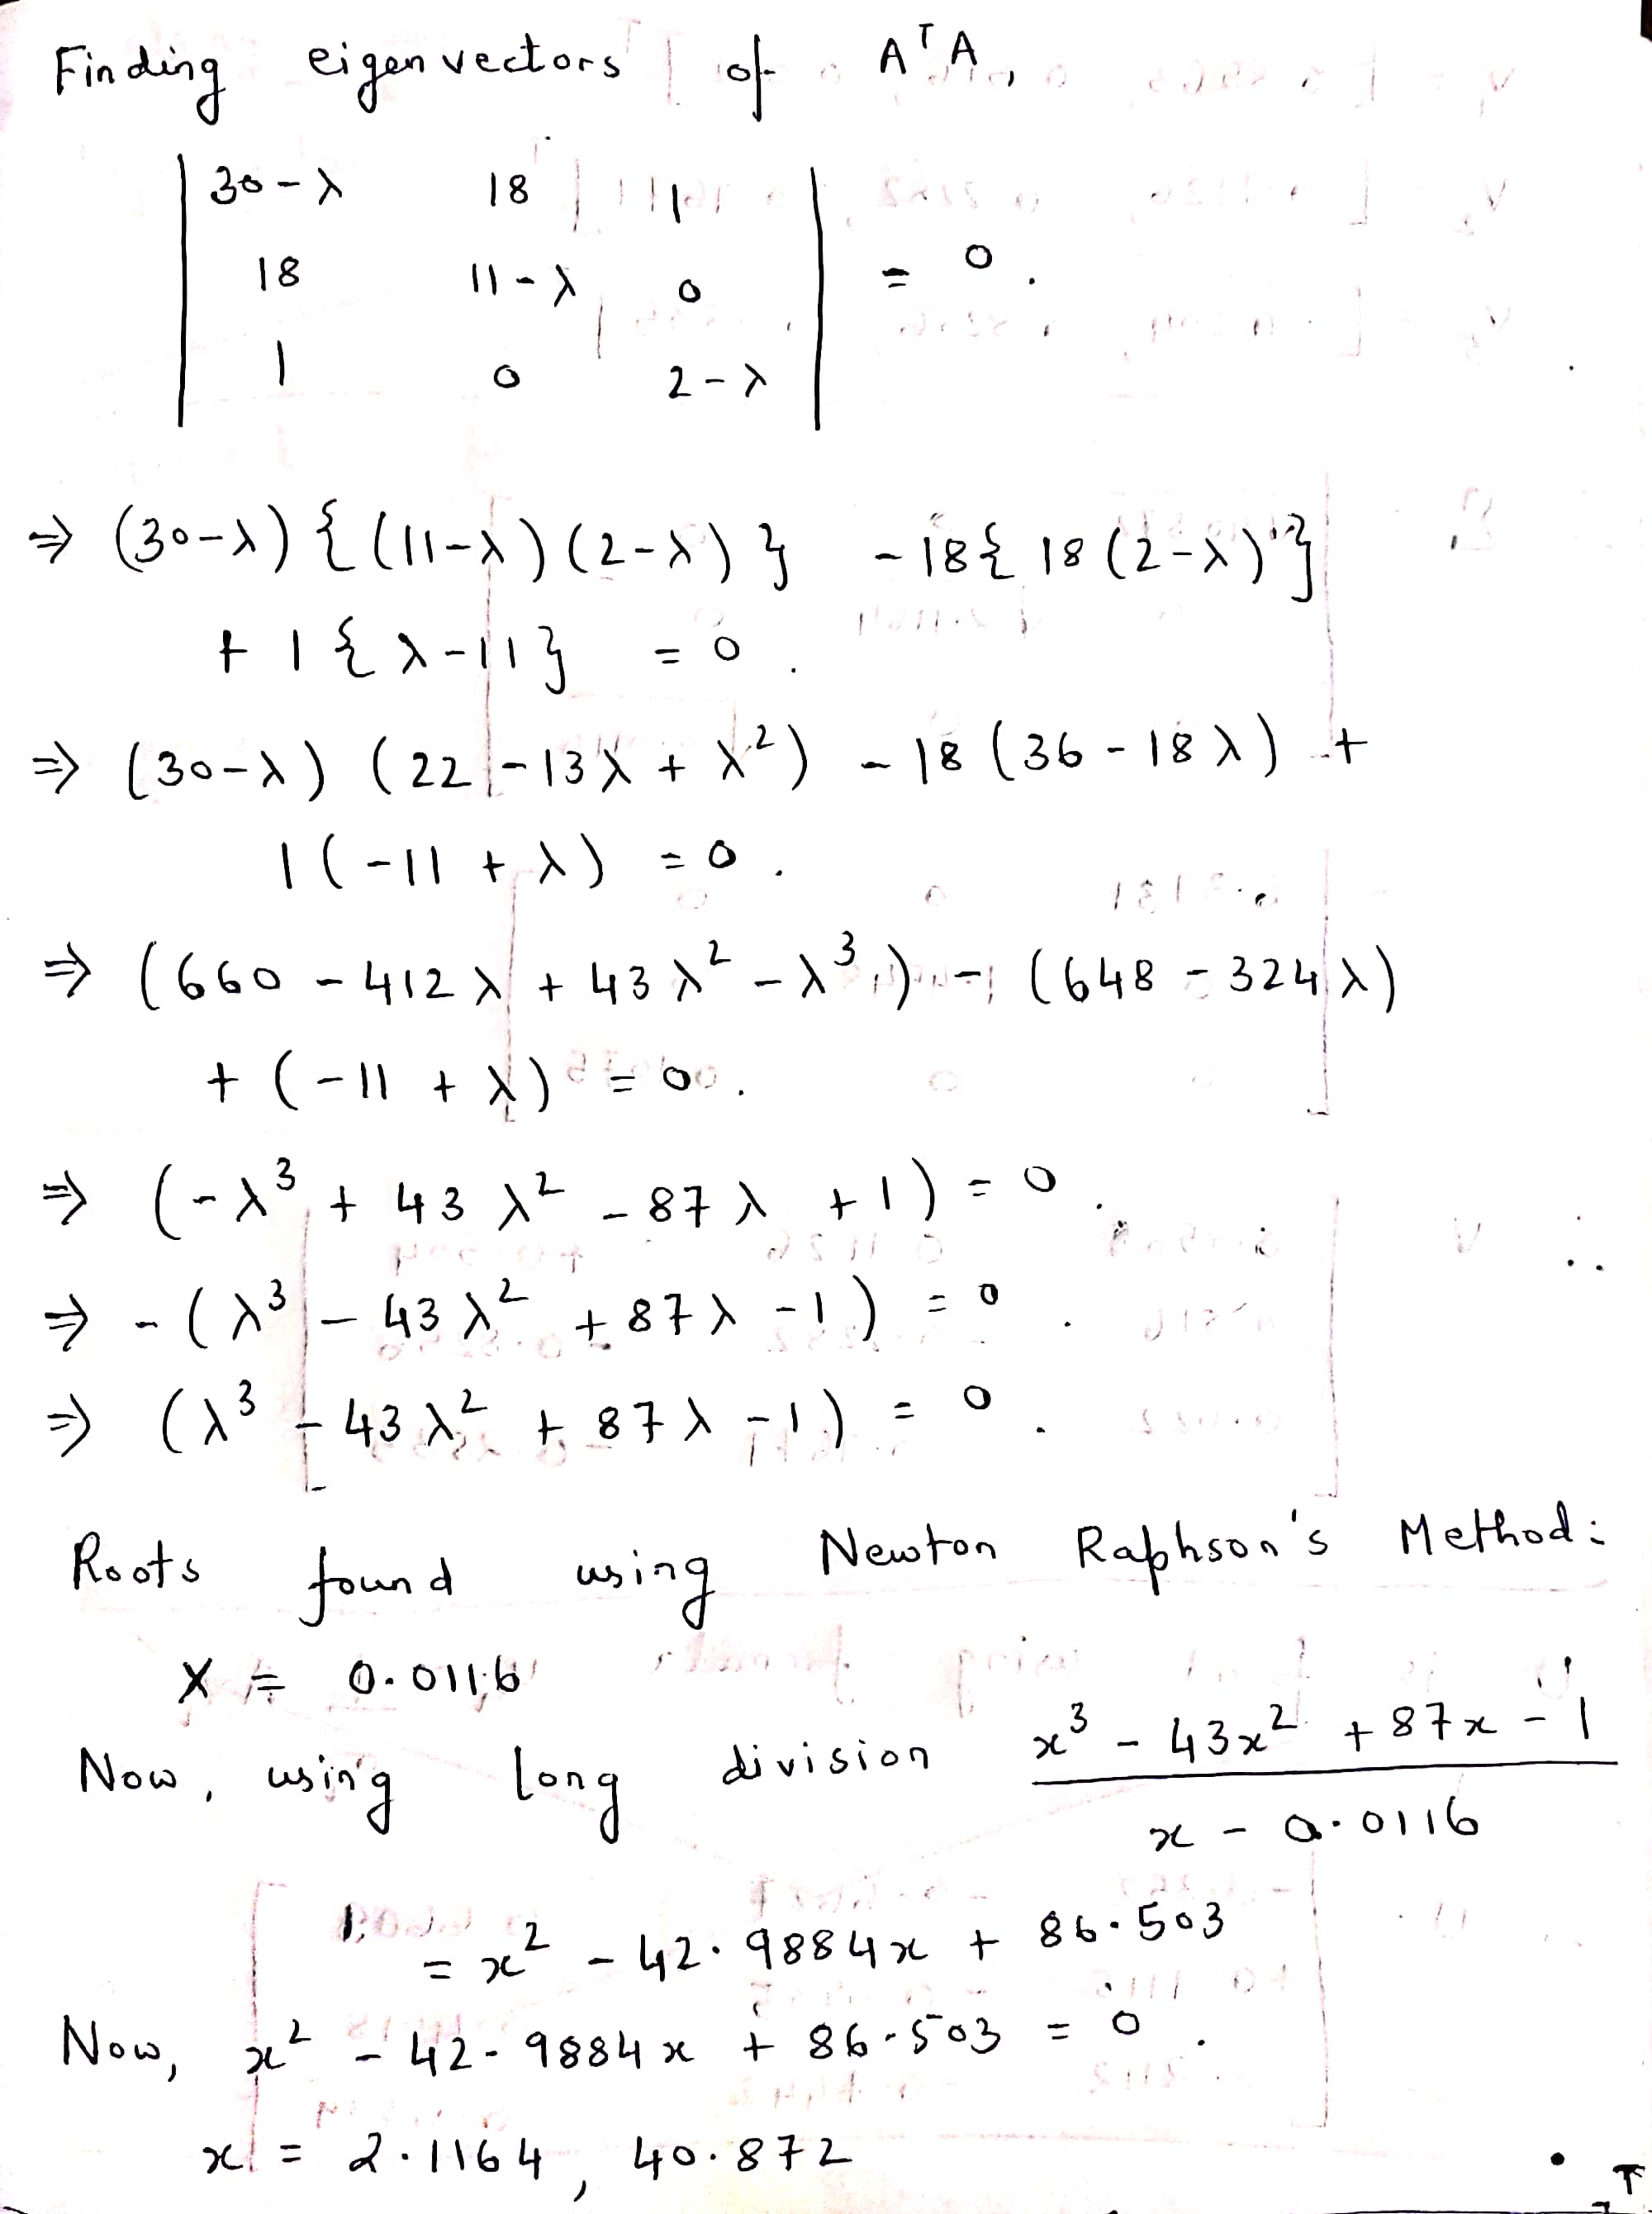 Finding eigenvectors of AᵀA,
| 30-λ 18 1 |
| 18 11-λ 0 | = 0.
| 1 0 2-λ |
⇒ (30-λ) { (11-λ) (2-λ) } - 18{ 18 (2-λ) }
+ 1 { λ-11 } = 0.
⇒ (30-λ) (22 - 13λ + λ²) - 18 (36 - 18λ) +
1 (-11 + λ) = 0.
⇒ (660 - 412λ + 43λ² - λ³) - (648 - 324λ)
+ (-11 + λ) = 0.
⇒ (-λ³ + 43λ² - 87λ + 1) = 0.
⇒ - (λ³ - 43λ² + 87λ - 1) = 0.
⇒ (λ³ - 43λ² + 87λ - 1) = 0.
Roots found using Newton Raphson's Method:
X = 0.0116
Now, using long division x³ - 43x² + 87x - 1
x - 0.0116
= x² - 42.9884x + 86.503
Now, x² - 42.9884x + 86.503 = 0.
x = 2.1164, 40.872